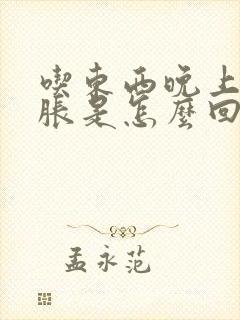 喫東西晚上
脹是怎麼回
孟永范